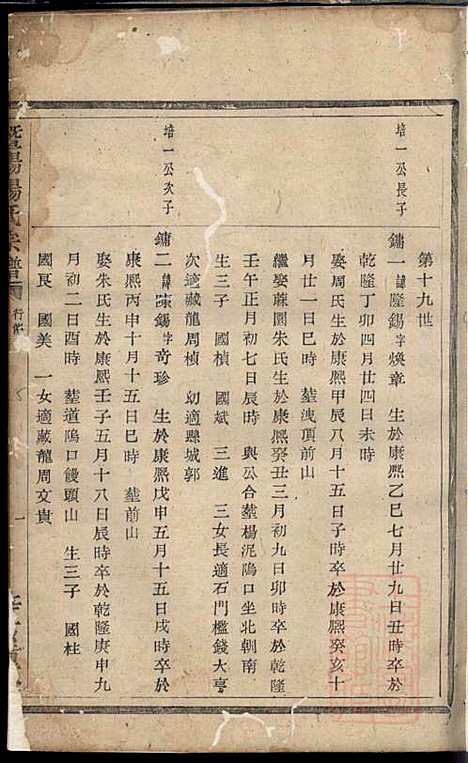 第十九世
培一公長子
鏞一 諱隆錫 字煥章 生於康熙乙巳七月廿九日丑時卒於
乾隆丁卯四月廿四日未時
娶周氏生於康熙甲辰八月十五日子時卒於康熙癸亥十
月廿一日巳時 塟洩頂前山
繼娶蔴園朱氏生於康熙癸丑三月初九日卯時卒於乾隆
壬午正月初七日辰時 與公合塟楊泥塢口坐北朝南
生三子 國楨 國斌 三進 三女長適石門檻錢大亨
次適藏龍周楨 幼適縣城郭
培一公次子
鏞二 諱 錫 字奇珍 生於康熙戊申五月十五日戌時卒於
康熙丙申十月十五日巳時 塟前山
娶朱氏生於康熙壬子五月十八日辰時卒於乾隆庚申九
月初二日酉時 塟道塢口饅頭山 生三子 國柱
國良 國美 一女適藏龍周文貴
暨陽楊氏宗譜
行
一